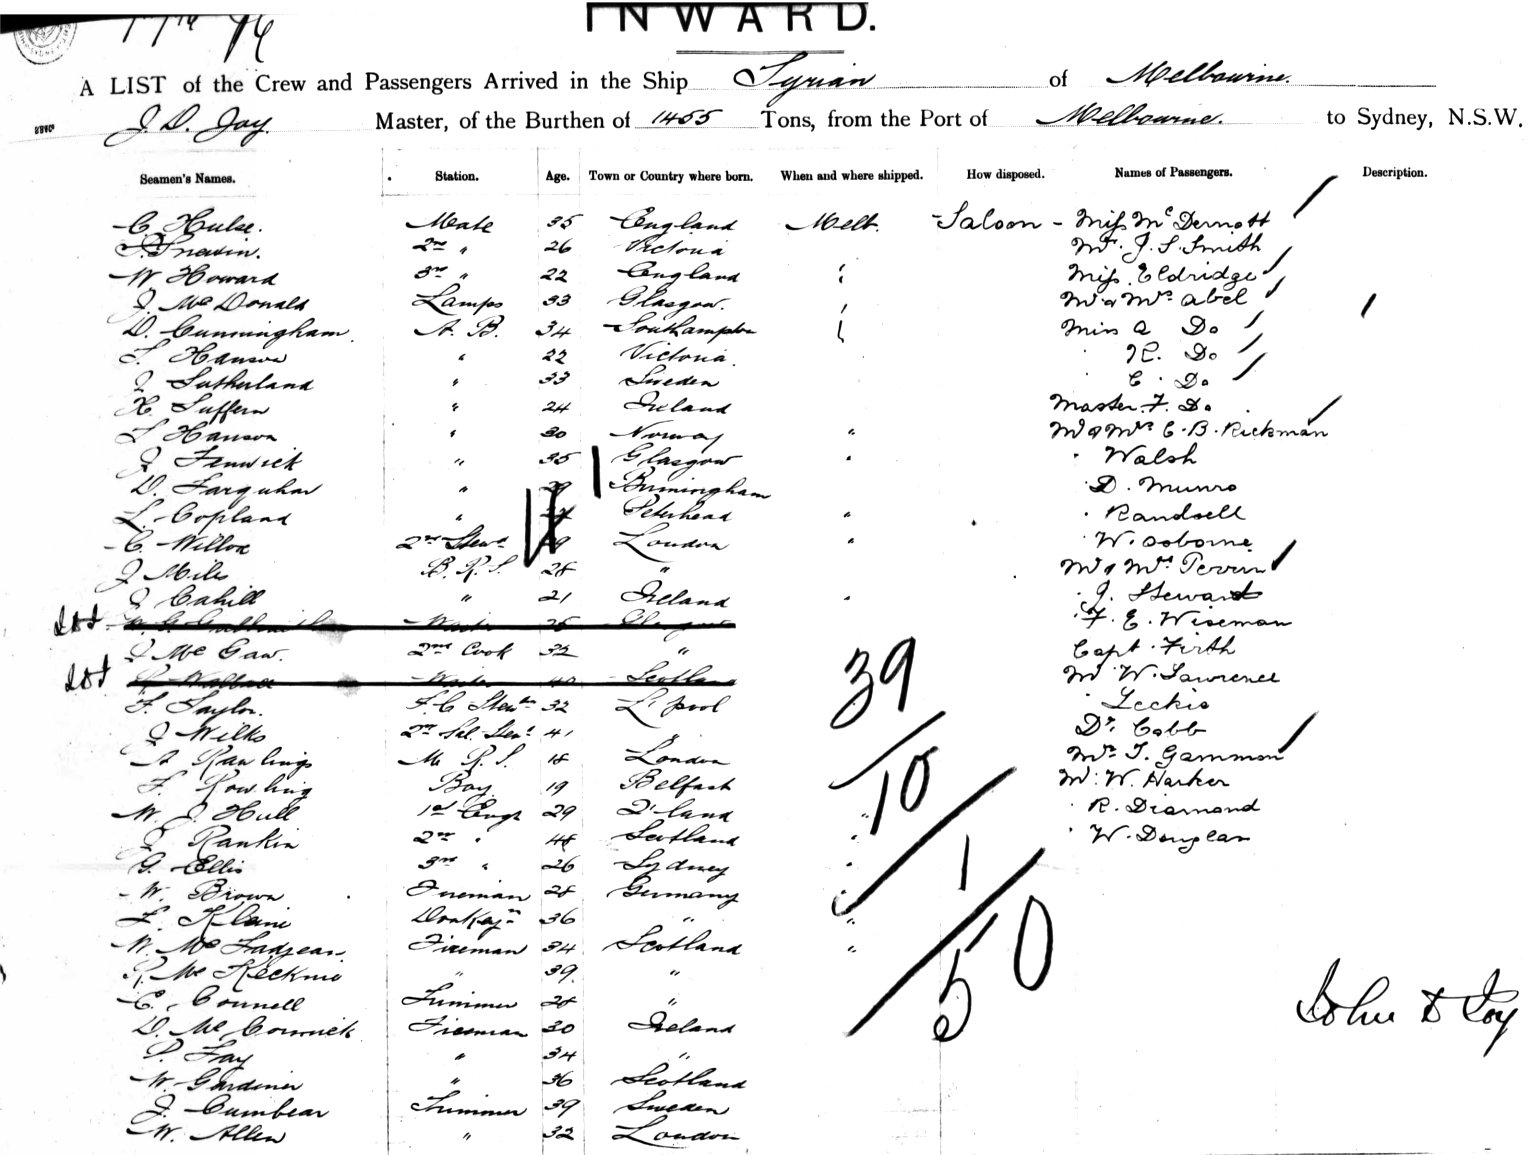 INWARD.
A LIST of the Crew and Passengers Arrived in the Ship Syrian of Melbourne.
J. D. Joy. Master, of the Burthen of 1455 Tons, from the Port of Melbourne. to Sydney, N.S.W.
Seamen's Names. Station. Age. Town or Country where born. When and where shipped. How disposed. Names of Passengers. Description.
C. Hulse. Mate 35 England Melb. Saloon - Miss McDermott
2nd " 26 Victoria Mr. J. S. Smith
W Howard 3rd " 22 England " Miss Eldridge
J. McDonald Lamps 33 Glasgow. Mr & Mrs Abel
D. Cunningham A. B. 34 Southampton Miss A Do
Hanson " 22 Victoria. Do
J Sutherland " 33 Sweden C. Do
H. Suffern " 24 Ireland Master F. Do
Hanson " 30 Norway " Mr & Mrs C. B. Rickman
J. Fenwick " 35 Glasgow " Walsh
D. Farquhar " Birmingham D. Munro
L. Copland " Peterhead " Randsell
C. Willox 2nd Stewd London " W. Osborne
J Miles B. R. S. 28 " Mr & Mrs Perrin
J Cahill " 21 Ireland " J. Steward
F. E. Wiseman
J McGaw. 2nd Cook 32 " Capt. Firth
Scotland Mr W. Lawrence
F. Taylor. F. C Stewdss 32 L'pool Leckie
J Wilks 2nd Sal. Stewd 41 " Dr. Cobb
A Rawlings M R. S. 18 London Mrs T. Gammon
F. Rowling Boy 19 Belfast Mr. W. Harker
W. J Hull 1st Engr 29 Q'land " R. Diamond
J Rankin 2nd " 48 Scotland " W. Douglas
G. Ellis 3rd " 26 Sydney "
W. Brown Fireman 28 Germany "
Klein Donkeyn 36 " "
W. McFadyean Fireman 34 Scotland "
R. Mc 39. "
C. Connell Trimmer 28 "
D. McCormick Fireman 30 Ireland
P. Fay " 34 "
W. Gardiner " 36 Scotland
J. Cumbear Trimmer 39 Sweden
W. Allen " 32 London
39
10
1
50
John D Joy